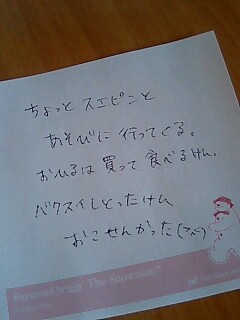 ちょっと スエピンと
あそびに 行ってくる。
おひるは 買って 食べるけん。
バクスイしとったけん
おこせんかった(>_<)
Raymond Briggs' The Snowman™